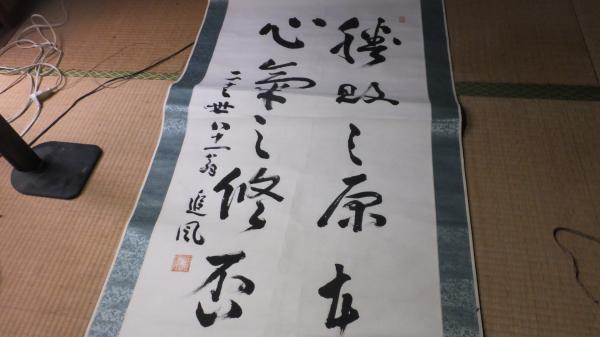 勝敗之原在
心氣之修否
廿三世八十一翁 追風